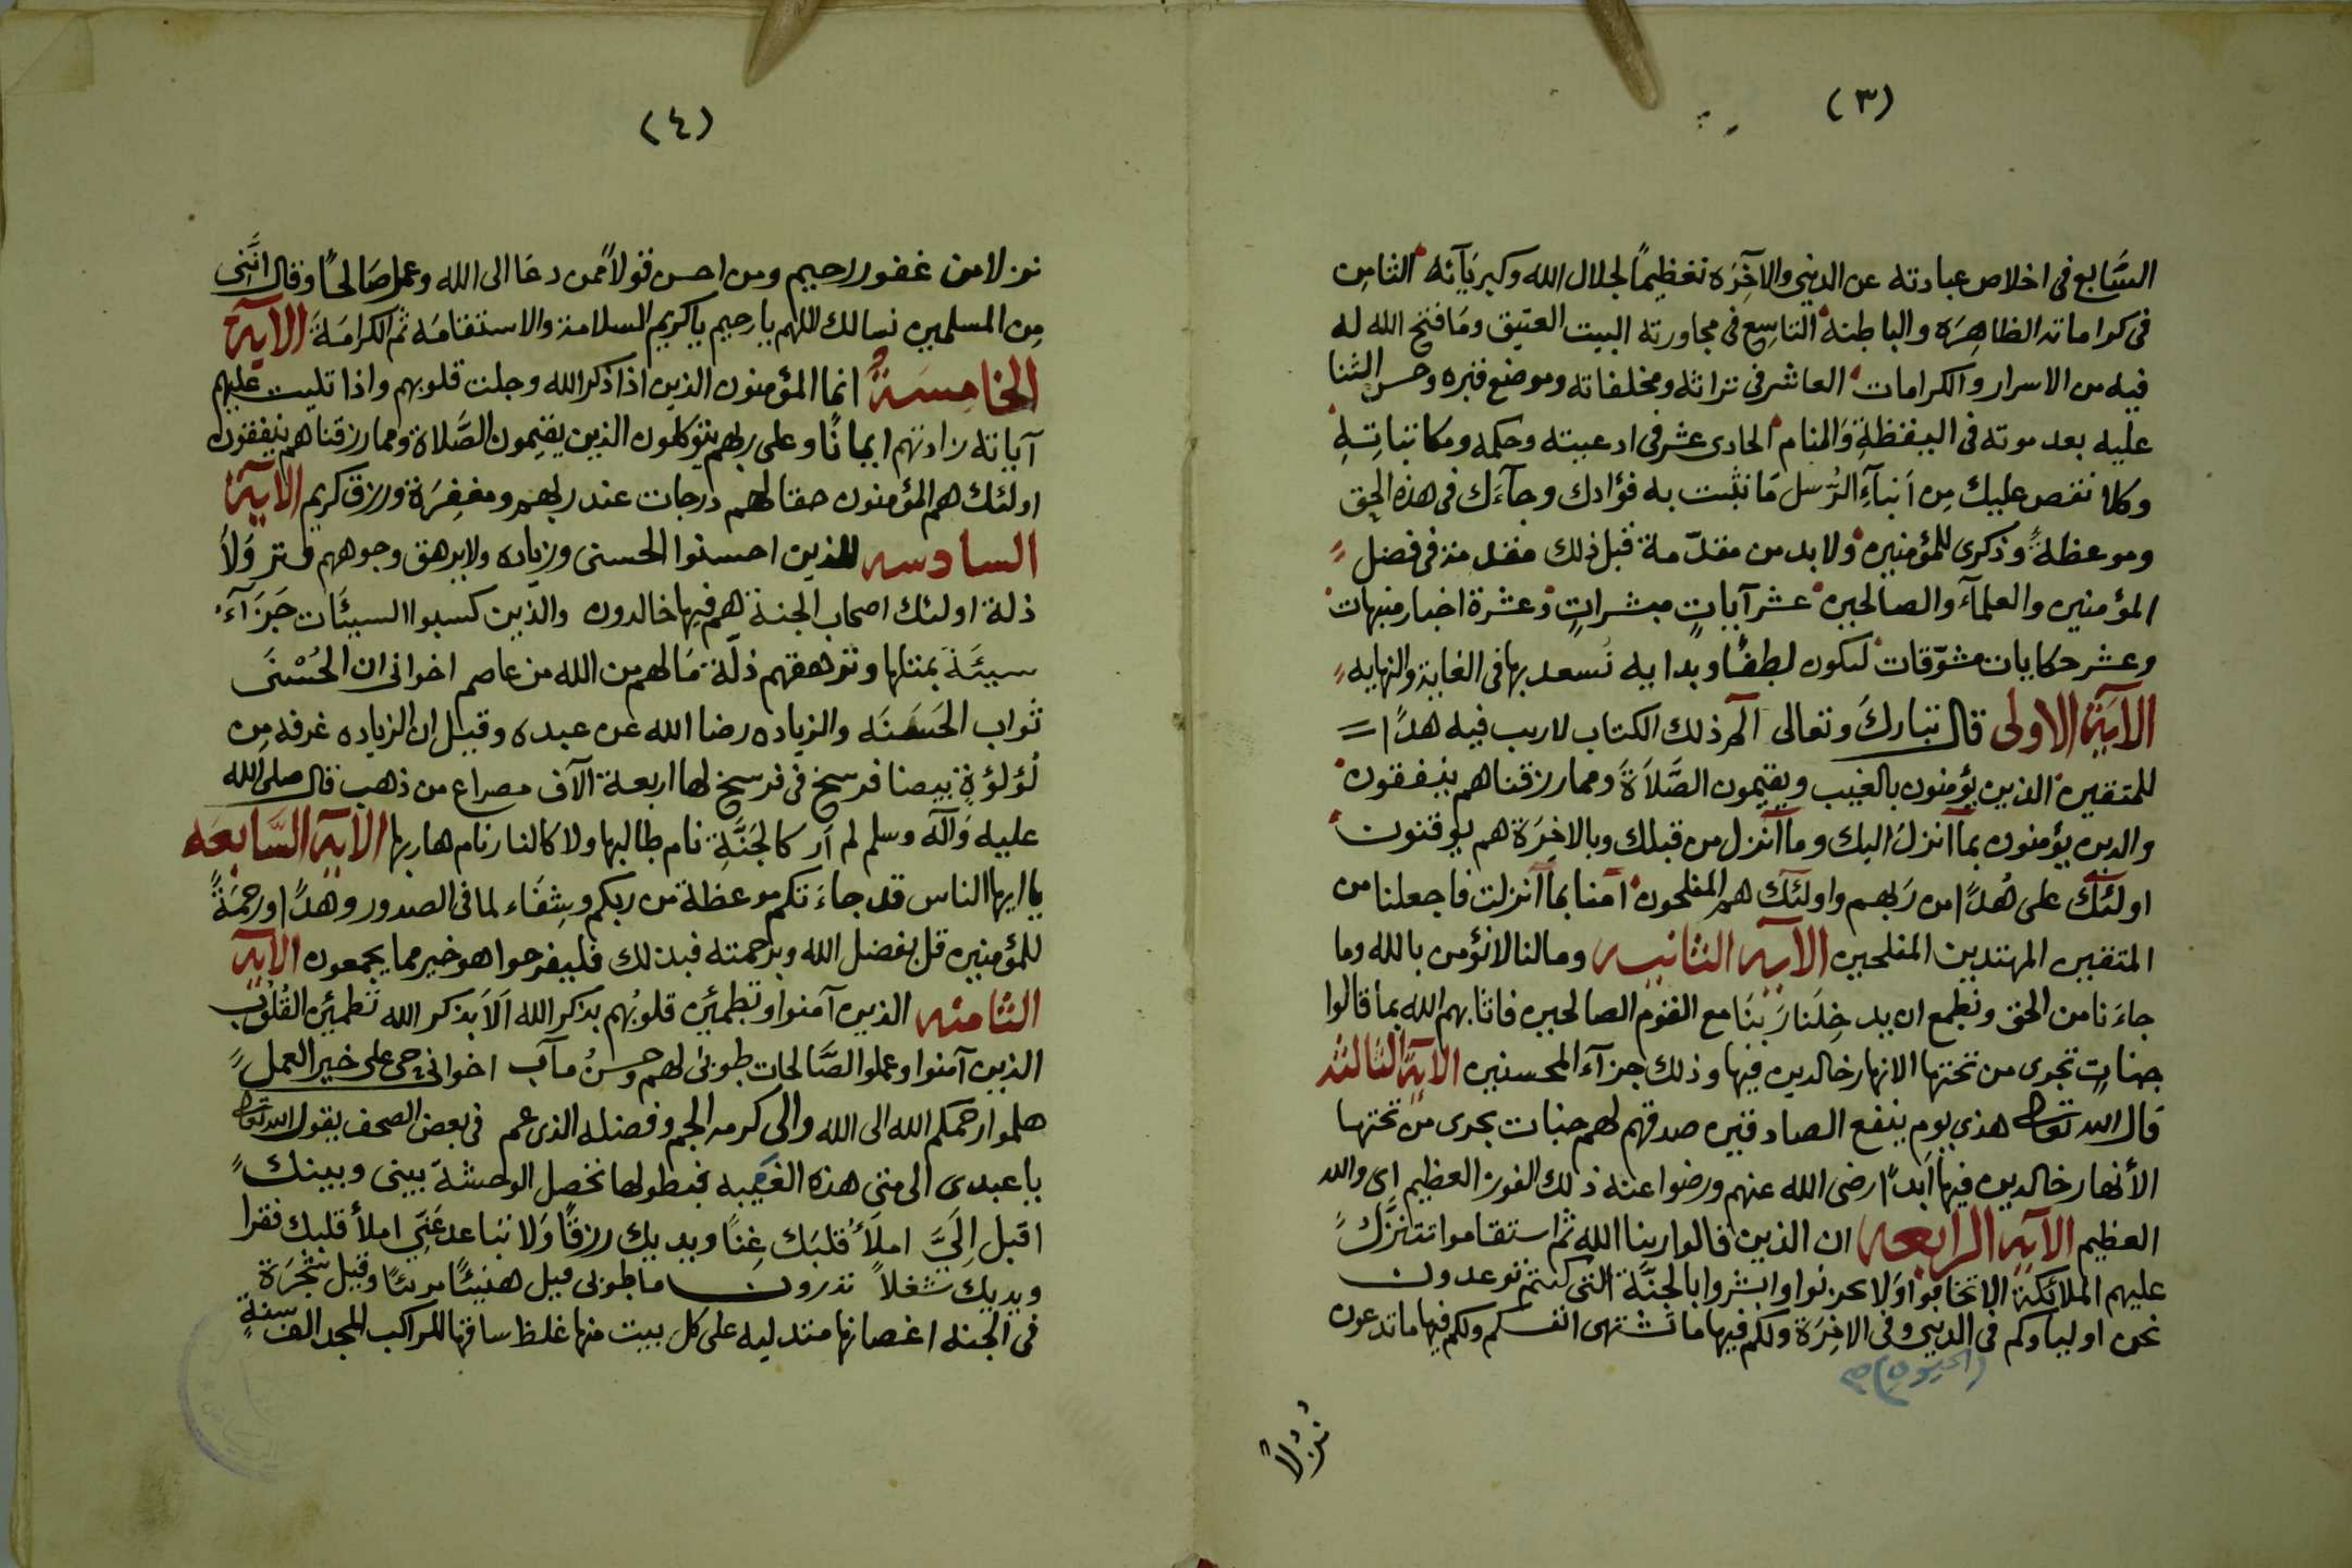 (٣)
السَّابع في اخلاص عبادته عن الدنيى والآخِرَه تعظيمًا لجلال الله وكبريَآئه الثامِن
في كراماته الظاهِرَه والباطنه التاسِع في مجاورته البيت العتيق ومَا فتح الله له
فيه من الاسرار والكرامات العاشر في تراثه ومخلفاته وموضع قبره وحسن الثنا
عليه بعد موته في اليقظةِ وَالمنام الحادى عشر في ادعيته وحكمه ومكاتباتِهِ
وكلا نقص عليك مِن اَنبآءِ الرُّسل مَا نثبت به فؤادك وجآءَك في هذه الحق
وموعظةً وذكرى للمؤمنين ولا بد من مقدّمة قبل ذلك مقدمة في فضل
المؤمنين والعلمآء والصالحين عشر آياتٍ مبشراتٍ وعشرة اخبار منبهات
وعشر حكايات مشوّقات لتكون لطفًا وبدايه نَسعد بها في الغاية والنهايه
الآيَة الاولى قال تبارك وتعالى آلم ذلك الكتاب لاريب فيه هدًا
للمتقين الذين يؤمنون بالغيب ويقيمون الصَّلاَةَ ومما رزقناهم ينفقون
والذين يؤمنون بمآ انزلَ اليك ومآ اُنزل من قبلك وبالاخِرَة هم يوقنون
اولئك على هُدًا من رَبهم واولئك هم المفلحون آمنا بمآ اَنزلت فاجعلنا من
المتقين المهتدين المفلحين الآيه الثانيه ومالنا لانؤمن بالله وما
جاءَنا من الحق ونطمع ان يدخِلَنا رَبنَا مع القوم الصالحين فاثابهم الله بما قالوا
جنات تجرى من تحتها الانهار خالدين فيها وذلك جزآء المحسنين الآيَة الثالثه
قال الله تعالى هذى يوم ينفع الصادقين صدقهم لهم جنات تجرى من تحتها
الأنهار خالدين فيها اَبدًا رضى الله عنهم ورضوا عنه ذلك الفوز العظيم اِى والله
العظيم الآيه الرابعه ان الذين قالوا ربنا الله ثم استقاموا تتنزَّلُ
عليهم الملائكة الا تخافوا وَلا تحزنوا وابشروا بالجنَّة التى كنتم توعدون
نحن اولياوكم في الدنيى وفي الاخِرَة ولكم فيها ما تشتهى انفسكم ولكم فيها ما تدعون
(الحيوه) صح
نُزُلاً
(٤)
نزلا من غفور رحيم ومن احسن قولاً ممن دعَا الى الله وعمل صَالحًا وقال انَّنى
مِن المسلمين نسالك اللهم يا رحيم يا كريم السلامة والاستقامَه ثم الكرامَة الآية
الخامِسَةُ انما المؤمنون الذين اذا ذكر الله وجلت قلوبهم واذا تليت عليهم
آياته زادتهم ايمانًا وعلى ربهم يتوَكلون الذين يقيمون الصَّلاة ومما رزقناهم ينفقون
اولئك هم المؤمنون حقا لهم درجات عند ربهم ومغفِرَة ورزق كريم الآية
السادسه للذين احسنوا الحسنى وزياده ولا يرهق وجوههم قتر وَلاَ
ذلة اولئك اصحاب الجنة هم فيها خالدون والذين كسبوا السيئَات جَزَآءُ
سيئَة بمثلها وترهقهم ذلّة مَا لهم من الله من عاصم اخوانى ان الحُسْنَى
ثواب الحَسَنَه والزياده رضا الله عن عبده وقيل ان الزياده غرفه مِن
لُؤلُؤة بيضا فرسخ في فرسخ لها اربعة الآف مصراع من ذهب قال صلى الله
عليه وَآلَه وسلم لم اَر كالجنَّةِ نام طالبها ولا كالنار نام هاربها الآيَه السَّابعَه
يا ايها الناس قد جاءَتكم موعظة من ربكم وشِفَاء لما في الصدور وهدًا ورحمَةً
للمؤمنين قل بفضل الله وبرحمته فبذلك فليفرحوا هو خير مما يجمعون الآيه
الثامنه الذين آمنوا وتطمئن قلوبُهم بذكر الله اَلاَ بذكر الله تطمئن القُلُوب
الذين آمنوا وعملوا الصَّالحات طوبى لهم وحسنُ مآب اخوانى حى على خير العمل
هلموا رحمكم الله الى الله والى كرمه الجم وفضله الذى عم في بعض الصحف يقول الله تعالى
يا عبدى الى متى هذه الغيبه فبطولها تحصل الوحشة بينى وبينك
اقبل اِلَيَّ املَأ قلبَك غِنًا ويديك رزقًا وَلا تباعد عَنّي املأ قلبك فقرا
ويديك شغلاً تدرون ما طوبى قيل هنيئًا مريئًا وقيل شجَرَة
في الجنه اغصانها متدليه على كل بيت منها غلظ ساقها للراكب المجد الف سنةٍ